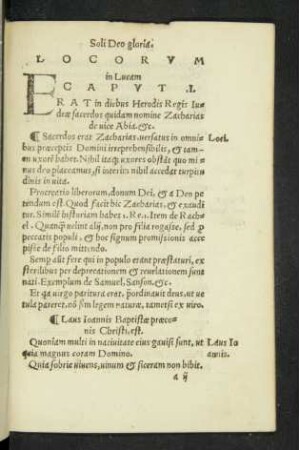 Soli Deo gloria.
LOCORVM
in Lucam
CAPVT .I.
ERAT in diebus Herodis Regis Iu-
deæ sacerdos quidam nomine Zacharias
de uice Abia.&c.
¶ Sacerdos erat Zacharias.uersatus in omni⁹ Lori.
bus præceptis Domini irreprehensibilis, & ta-
men uxorē habet. Nihil itaq; uxores obstāt quo mi-
nus deo placeamus, si interiis nihil accedat turpi-
dinis in uita.
Procreatio liberorum, donum Dei, & a Deo pe-
tendum est. Quod facit hic Zacharias, & exaudi-
tur. Similē historiam habes 1. Re.1. Item de Rachel
. Quanq̄ uelint alij, non pro filia rogasse, sed p
peccatis populi, & hoc signum promissionis acce-
pisse de filio mittendo.
Semp alūt fere qui in populo erant præstaturi, ex
sterilibus per deprecationem & reuelationem sunt
nati. Exemplum de Samuel, Sanson.&c.
Et qa uirgo paritura erat, pordinauit deus, ut ue
tula pareret, nō sm legem naturæ, tametsi ex uiro.
¶ Laus Ioannis Baptistæ præco-
nis Christi.est.
Quoniam multi in natiuitate eius gauisi sunt, ut Laus Io
quia magnus coram Domino. annis.
Quia sobrie uiuens, uinum & siceram non bibit.
a ij